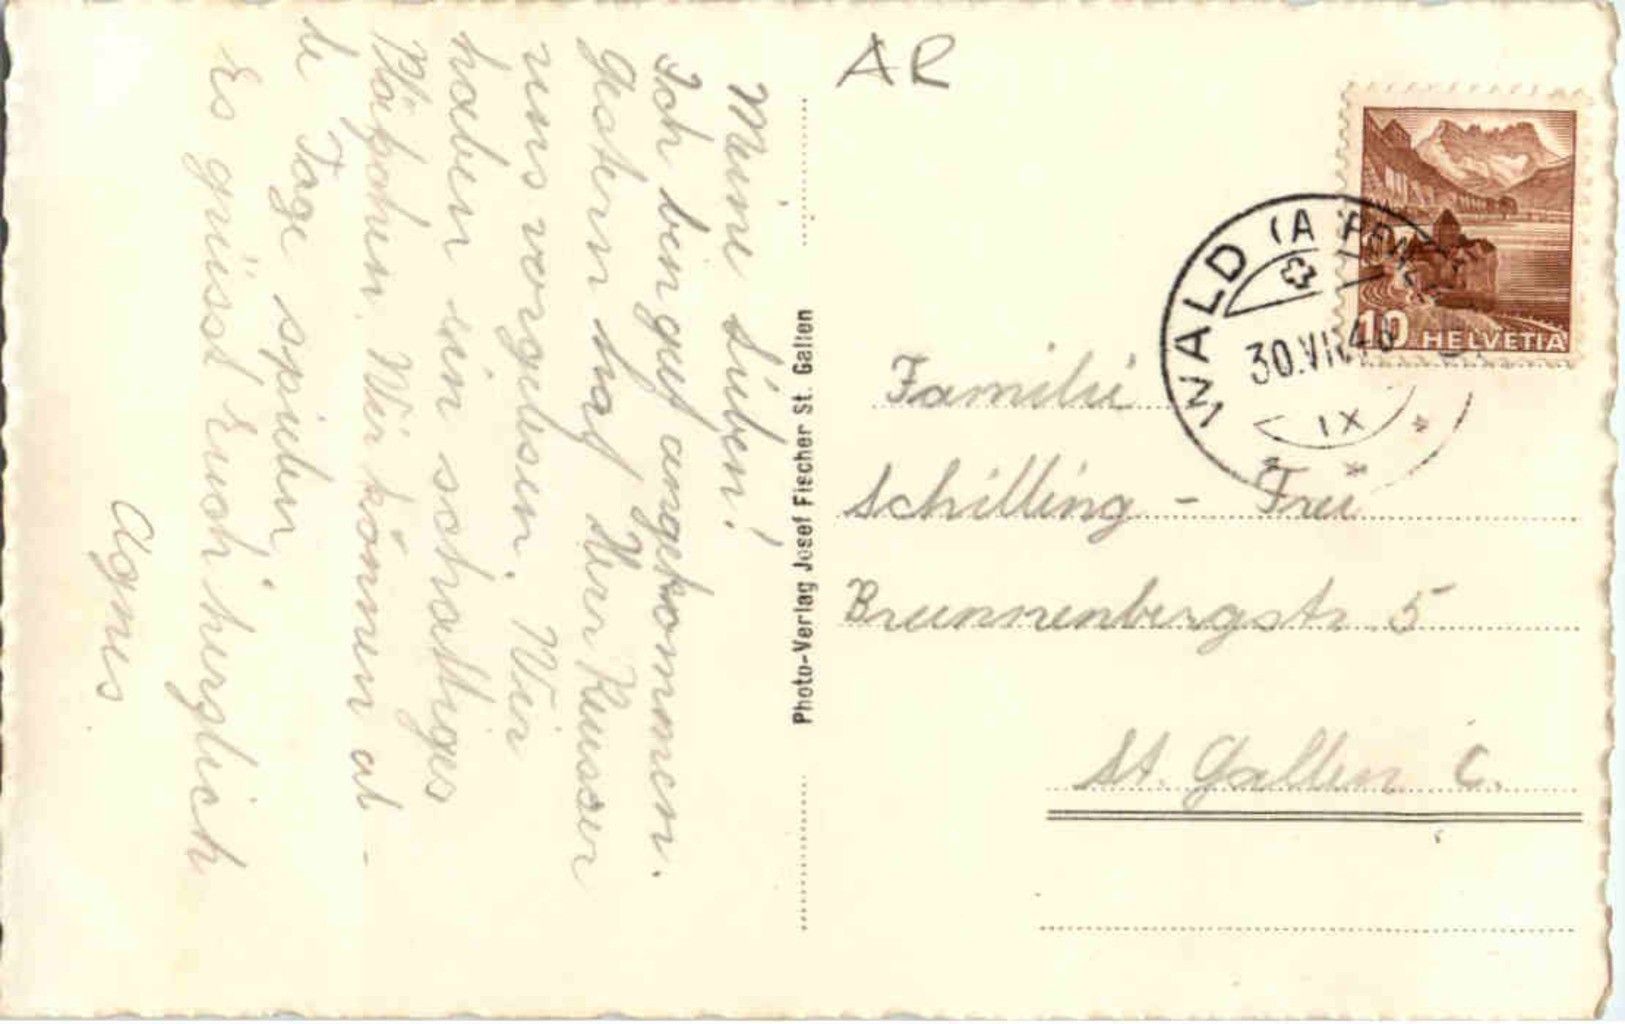 Meine Lieben!
Ich bin gut angekommen.
Gestern hat Herr Keusser
uns vorgelesen. Wir
haben ein schattiges
Plätzchen. Wir können al-
le Tage spielen.
Es grüsst Euch herzlich
Agnes
Photo-Verlag Josef Fischer St. Gallen
AR
WALD (APPENZELL)
30.VII.40
IX
10 HELVETIA
Familie
Schilling - Frei
Brunnenbergstr. 5
St. Gallen C.